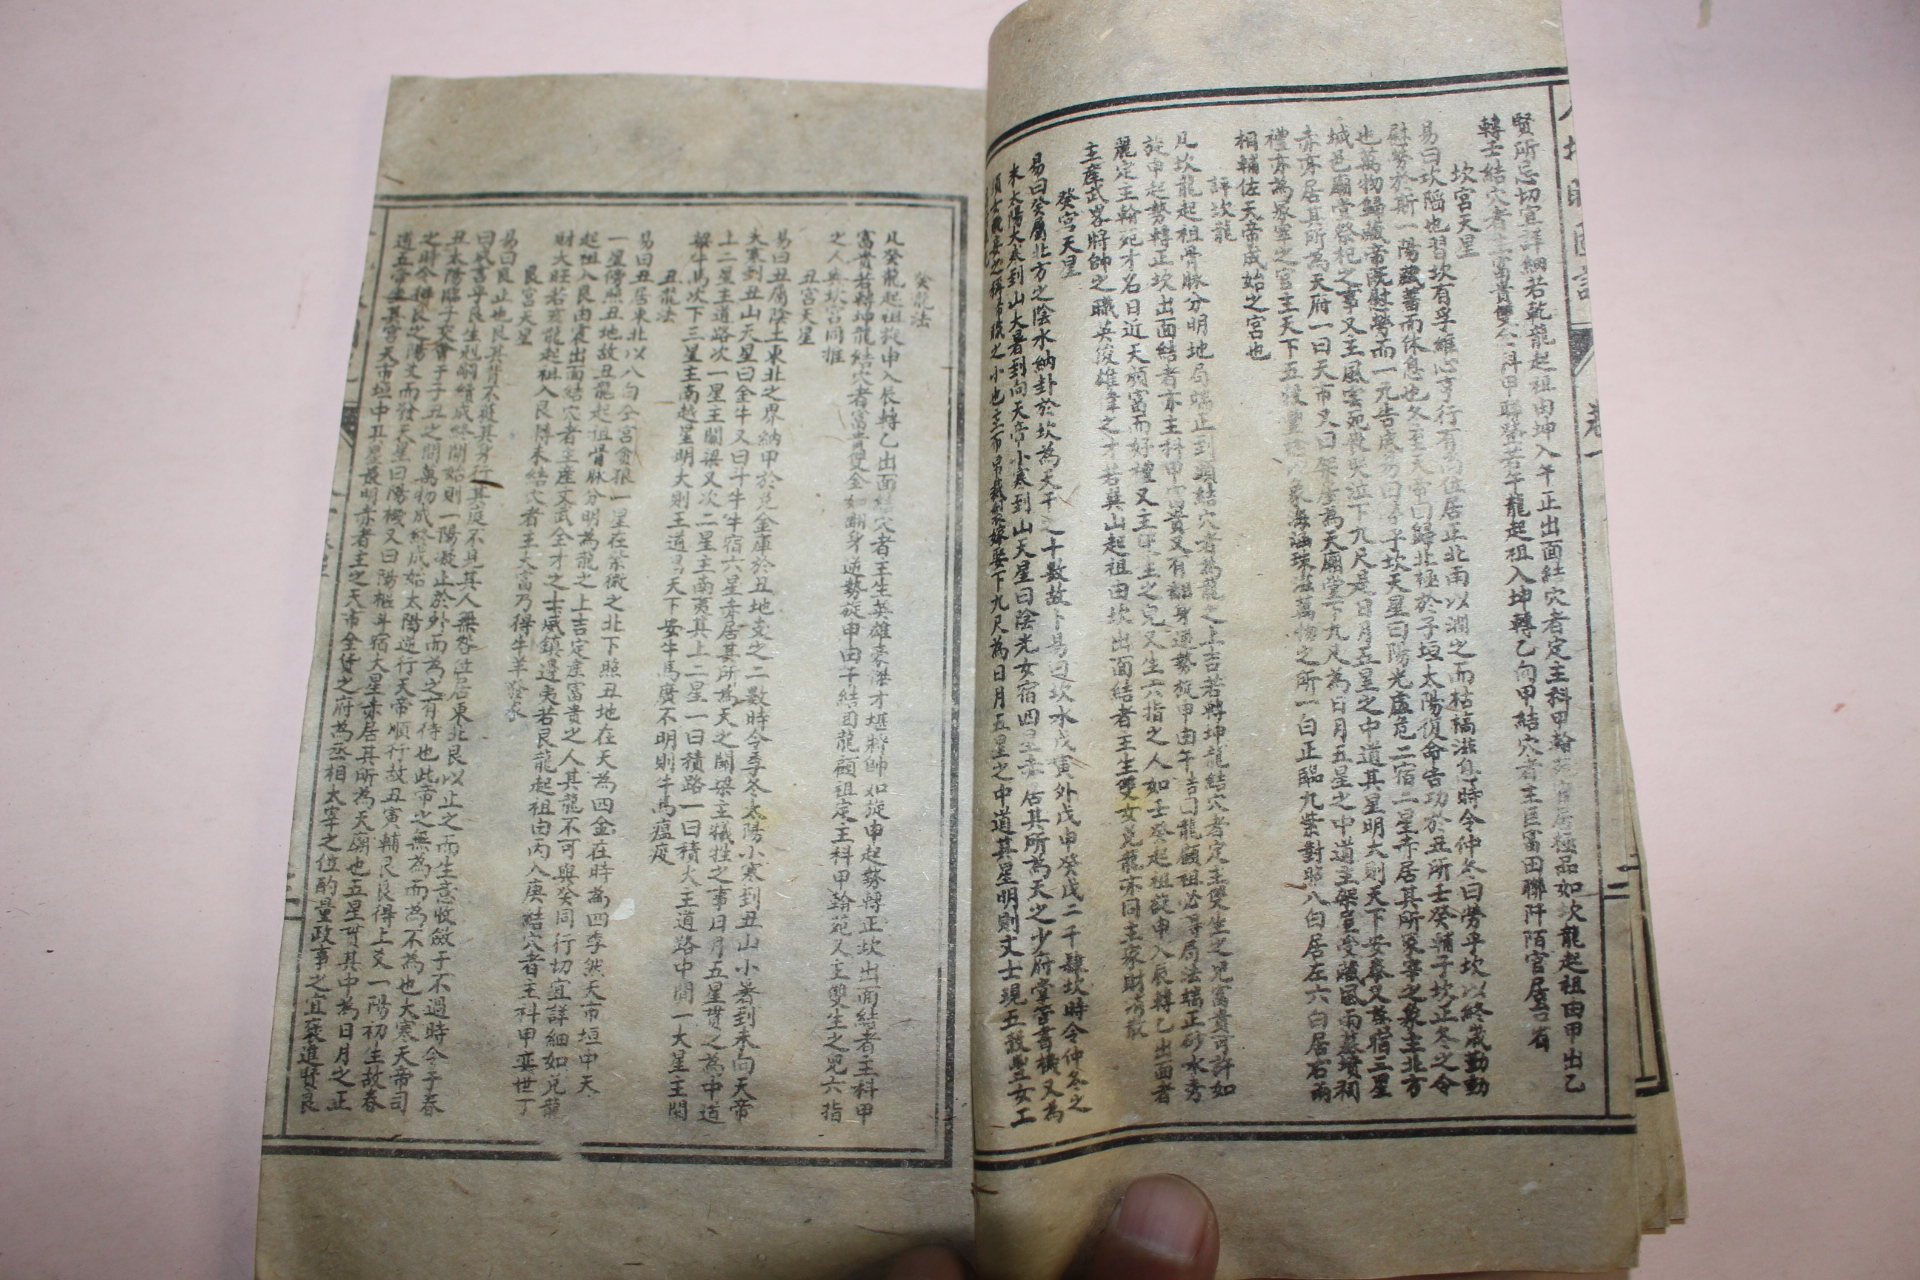 賢所忌切宜詳細若乾龍起祖由坤入午正出面結穴者定主科甲翰苑官居極品如坎龍起祖由甲出乙
轉壬結穴者主富貴雙全科甲聯登若午龍起祖入坤轉乙向甲結穴者主臣富田聯阡陌官居
坎宮天星
易曰坎陷也習坎有孚維心亨行有尚位居正北雨以潤之而枯槁滋息時令仲冬曰勞乎坎以終歲勤動
慰勞於斯一陽藏蓄而休息也冬至天帝曰歸北極於子垣太陽復命告功於丑所壬癸輔子坎正冬之令
也萬物歸藏帝既慰勞而一元告成易曰坎子坎天星曰陽光虛危二宿二星赤居其所象宰之象主北方
城邑廟堂祭祀之事又主風雲死喪哭泣下九尺是日月五星之中道其星明大則天下安泰又宿三星
赤亦居其所為天府一曰天市又曰架屋為天廟堂下九尺為日月五星之中道主架豈受藏風雨墓墳祠
禮亦為冢宰之宮主天下五穀豐之象海涵珠滋萬物之所一白正臨九紫對照八白居左六白居右兩
相輔佐天帝成始之宮也
評坎龍
凡坎龍起祖骨脉分明地局端正到頭結穴者為龍之上吉若轉坤龍結穴者定主雙生之兒富貴可許如
旋申起勢轉正坎出面結者亦主科甲富貴又有翻身逆勢旋申由午結回龍顧祖必尋局法端正砂水秀
麗定主翰苑才名日近天顏富而好禮又主單生之兒又生六指之人如壬癸起祖旋申入辰轉乙出面者
主產武畧將帥之職英俊雄偉之才若巽山起祖由坎出面結者主生雙女兒龍亦同主家財消散
癸宮天星
易曰癸屬北方之陰水納卦於坎為天干之十數故卜易曰坎水戊寅外戊申癸戊二千肆坎時令仲冬之
末太陽大寒到山大暑到向天帝小寒到山天星曰陰光女宿四星赤居其所為天之少府掌音書機又為
須女賤妾之稱帝職之小也主布帛裁製嫁娶下九尺為日月五星之中道其星明則文士現五穀豐女工
癸龍法
凡癸龍起祖旋申入辰轉乙出面結穴者主生英雄豪傑才堪將帥如旋申起勢轉正坎出面結者主科甲
富貴若轉坤龍結穴者富貴雙全如翻身逆勢旋申由午結回龍顧祖定主科甲翰苑又主雙生之兒六指
之人與坎宮同推
丑宮天星
易曰丑屬陰土東北之界納甲於兌金庫於丑地支之二數時令季冬太陽小寒到丑山小暑到未向天帝
大寒到丑山天星曰金牛又曰斗牛牛宿六星赤居其所為天之關梁主犧牲之事日月五星貫之為中道
上二星主道路次一星主關梁又次二星主南夷其上二星一曰積路一曰積火主道路中間一大星主關
梁牛馬次下三星主南越星明大則王道昌天下安牛馬廣不明則牛馬瘟疫
丑龍法
易曰丑居東北以八白全宮貪狼一星在紫微之北下照丑地在天為四金在時為四季然天市垣中天
一星傍照丑地故丑龍起祖骨脉分明為龍之上吉定產富貴之人其龍不可與癸同行切宜詳細如兌龍
起祖入艮由庚出面結穴者主產文武全才之士威鎮邊夷若艮龍起祖由丙入庚結穴者主科甲奕世丁
財大旺若亥龍起祖入艮轉未結穴者主大富乃得牛羊發家
艮宮天星
易曰艮止也艮其背不獲其身行其庭不見其人無咎位居東北艮以止之而生意收斂于不過時令子春
曰成言乎艮生剋嗣續成終開始則一陽凝止於外而為之有待也此帝之無為而為不為也大寒天帝司
丑太陽臨子交會于子丑之間萬物成終成始太陽逆行天帝順行故丑寅輔艮艮得上爻一陽初生故春
之時令得艮之陽爻而發天星曰陽機又曰陽樞斗宿大星赤居其所為天廟也五星貫其中為日月之正
道五常主其宮天市垣中其星最明亦者主之天市全貨之府為丞相太宰之位酌量政事之宜褒進賢良
卷一
二